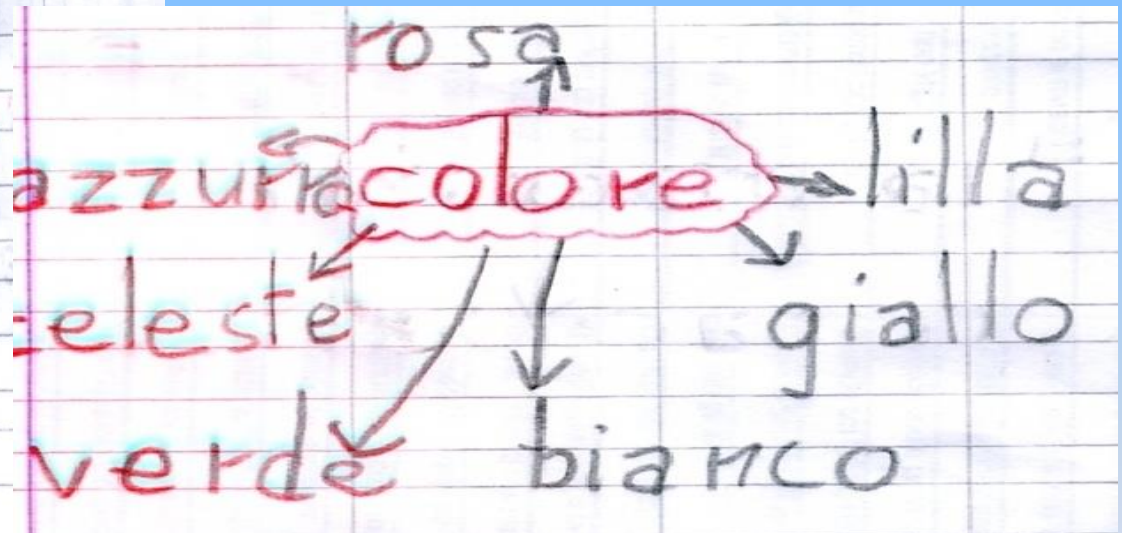 rosa
azzurro colore lilla
celeste giallo
verde bianco